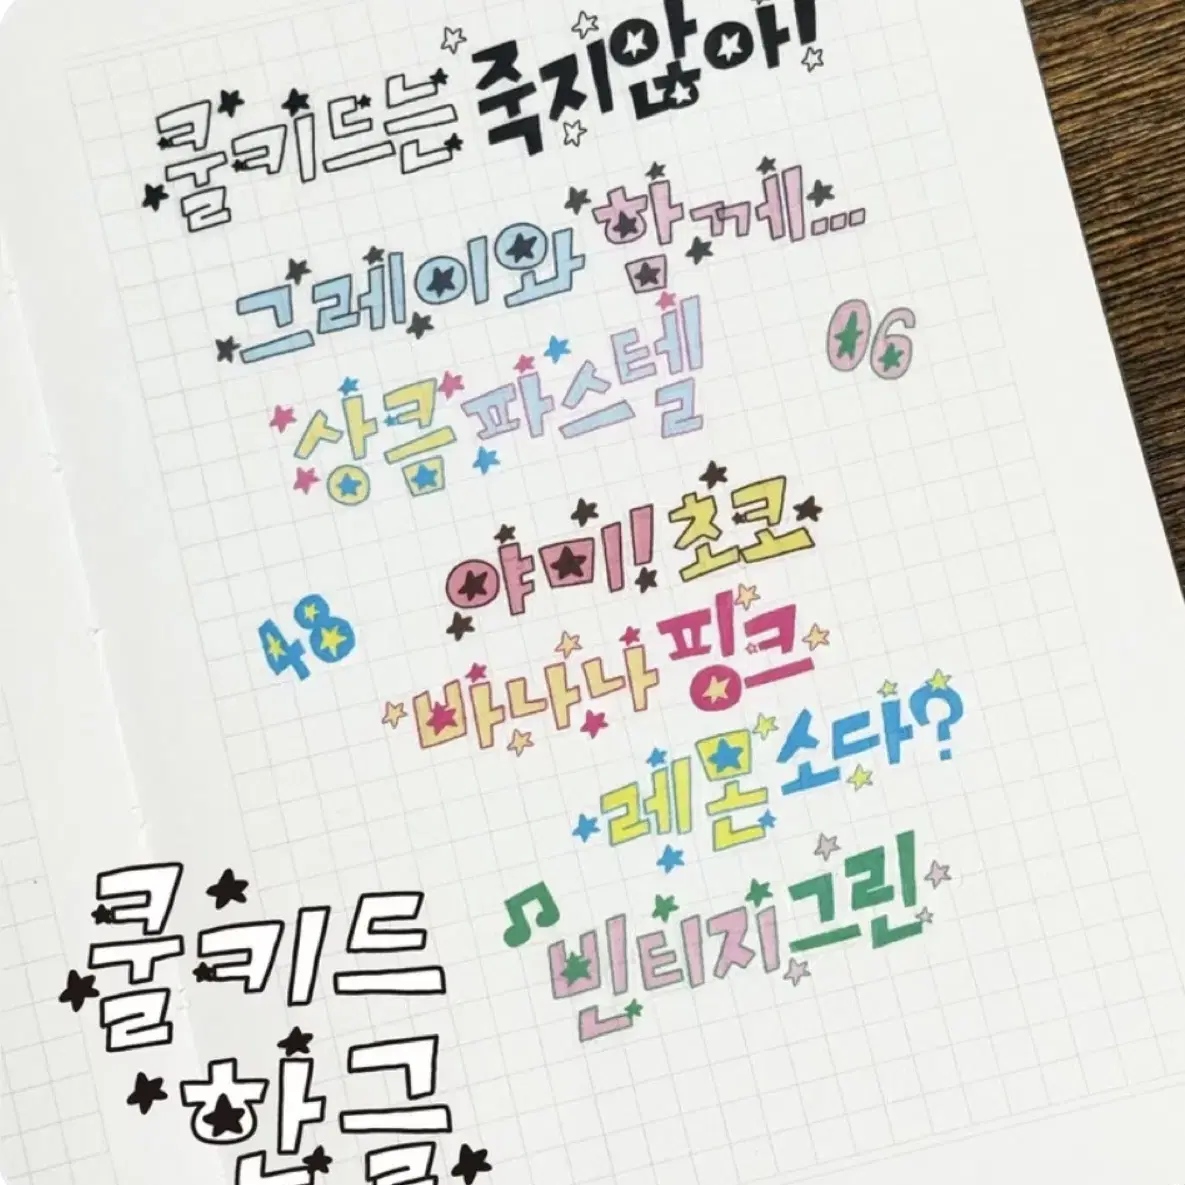 쿨키드는 죽지않아!
그레이와 함께...
상큼 파스텔
06
야미! 초코
48
바나나 핑크
레몬 소다?
빈티지 그린
쿨키드
한글